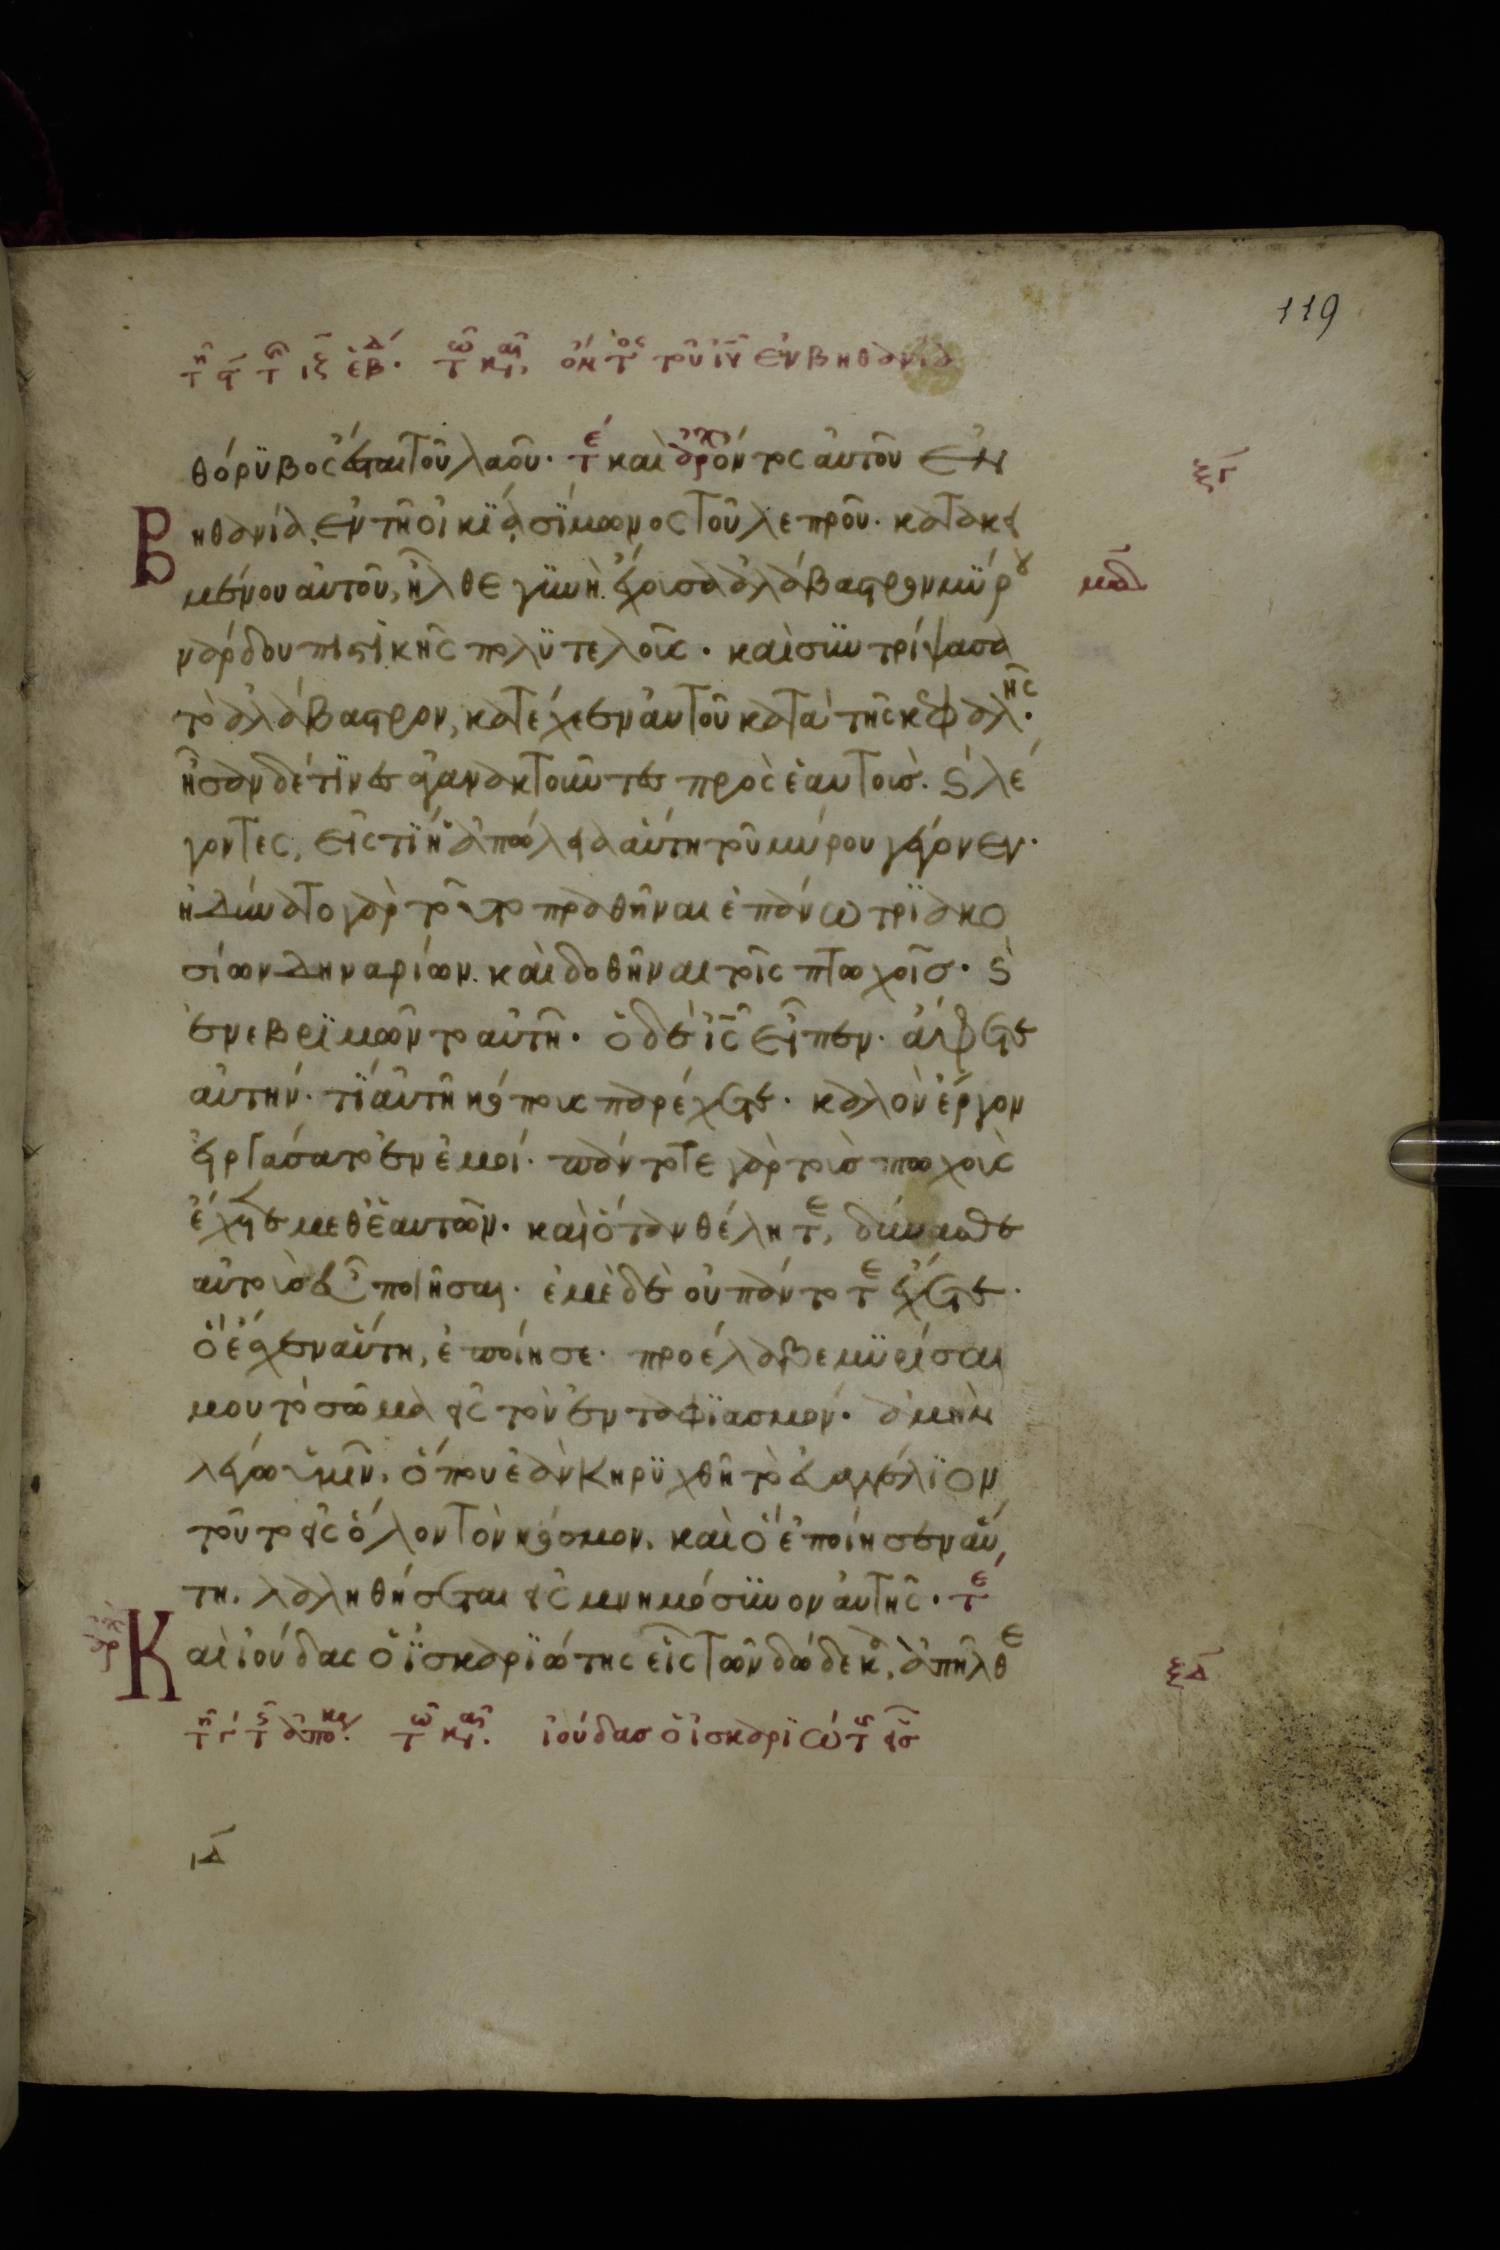 119
τῆ δ τῆς ιζ ἑβδ. τῷ καιρῷ, ὄντος τοῦ ἰῦ ἐν βηθανία
θόρϋβος ἔσται τοῦ λαοῦ. τέ καὶ ἀρχ ὄντος αὐτοῦ ἐν
ξγ
Βηθανία, ἐν τῆ οἰκΐα σΐμωνος τοῦ λεπροῦ. κατακει
μένου αὐτοῦ, ἦλθε γϋνὴ ἔχουσα ἀλάβαστρον μϋρου
μδ
νάρδου πιστικῆς πολϋτελοῦς. καὶ σϋντρίψασα
τὸ ἀλάβαστρον, κατέχεεν αὐτοῦ κατὰ τῆς κεφαλῆς.
ἦσαν δέ τϊνες ἀγανακτοῦντες πρὸς ἑαυτοὺς. ϗ λέ
γοντες, εἰς τΐ ἡ ἀπώλεια αὕτη τοῦ μύρου γέγονεν.
ἠδύνατο γὰρ τοῦτο πραθῆναι ἐπάνω τρϊακο
σίων δηναρίων. καὶ δοθῆναι τοῖς πτωχοῖς. ϗ
ἐνεβρϊμῶντο αὐτῆ. ὁ δὲ ἰς εἶπεν. ἄφετε
αὐτήν. τΐ αὐτῆ κόπους παρέχετε. καλὸν ἔργον
εἰργάσατο ἐν ἐμοί. πάντοτε γὰρ τοὺς πτωχοὺς
ἔχετε μεθ ἑαυτῶν. καὶ ὅταν θέλητε, δύνασθε
αὐτοὺς εὖ ποιῆσαι. ἐμὲ δὲ οὐ πάντοτε ἔχετε.
ὃ ἔσχεν αὕτη, ἐποίησε. προέλαβε μϋρίσαι
μου τὸ σῶμα εἰς τὸν ἐνταφϊασμόν. ἀμὴν
λέγω ὑμῖν. ὅπου ἐὰν κηρϋχθῆ τὸ εὐαγγέλϊον
τοῦτο εἰς ὅλον τὸν κόσμον. καὶ ὃ ἐποίησεν αὕ
τη. λαληθήσεται εἰς μνημόσϋνον αὐτῆς. τέ
ἀρχ Καὶ ἰούδας ὁ ἰσκαρϊώτης εἷς τῶν δώδεκα, ἀπῆλθε
ξδ
τῆ γ τῆς ἀπόκρ. τῷ καιρῷ. ἰούδας ὁ ἰσκαρϊώτης εἷς
ιδ